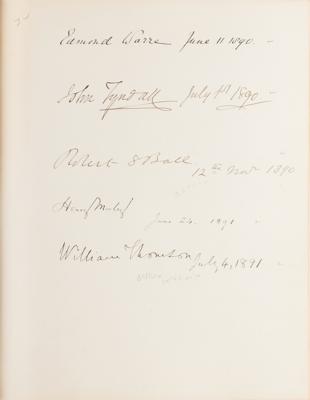 Edmond Warre June 11 1890. –
John Tyndall July 1st 1890 –
Robert S Ball
12th Nov 1890
Henry
June 24. 1891
William Thomson July 4, 1891 –